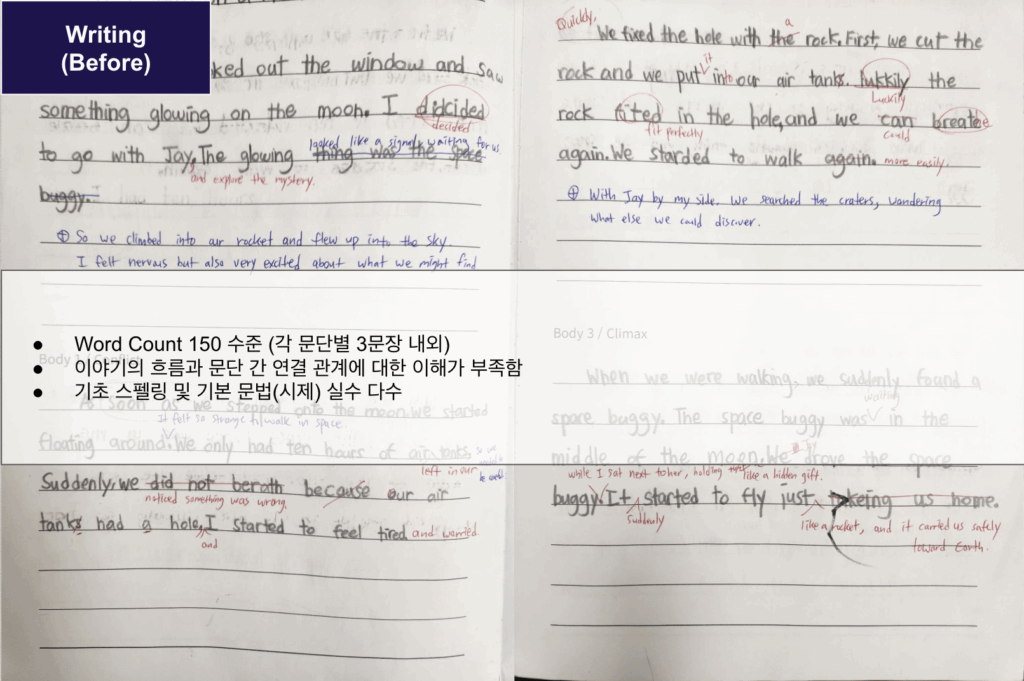 Writing
(Before)
ked out the window and saw
something glowing on the moon. I didcided
decided
looked like a signal, waiting for us.
to go with Jay. The glowing thing was the spece
and explore the mystery.
buggy.
⊕ So we climbed into our rocket and flew up into the sky.
I felt nervous but also very excited about what we might find
Word Count 150 수준 (각 문단별 3문장 내외)
Body 1 / Conflict
이야기의 흐름과 문단 간 연결 관계에 대한 이해가 부족함
기초 스펠링 및 기본 문법(시제) 실수 다수
As soon as we stepped onto the moon, we started
It felt so strange to walk in space
floating around. We only had ten hours of air tanks
left in our
Suddenly, we did not berath because our air
noticed something was wrong.
tanks had a hole, I started to feel tired and worried
and
Quickly,
a
We fixed the hole with the rock. First, we cut the
it
rock and we put into our air tank. lukkily the
Luckily
rock fited in the hole, and we can breate
fit perfectly
could
again. We starded to walk again. more easily.
⊕ With Jay by my side. We searched the craters, wondering
what else we could discover.
Body 3 / Climax
When we were walking, we suddenly found a
waiting
spare buggy. The space buggy was in the
middle of the moon. We drove the space
while I sat next to her, holding like a hidden gift.
buggy. It started to fly just takeing us home.
Suddenly
like a rocket, and it carried us safely
toward Earth.